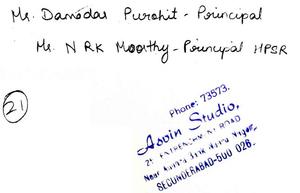 Mr. Damodar Purohit - Principal
Mr. N R K Moorthy - Principal HPSR
21
Phone: 73573.
Asvin Studio,
ROAD
Near
SECUNDERABAD-500 026.